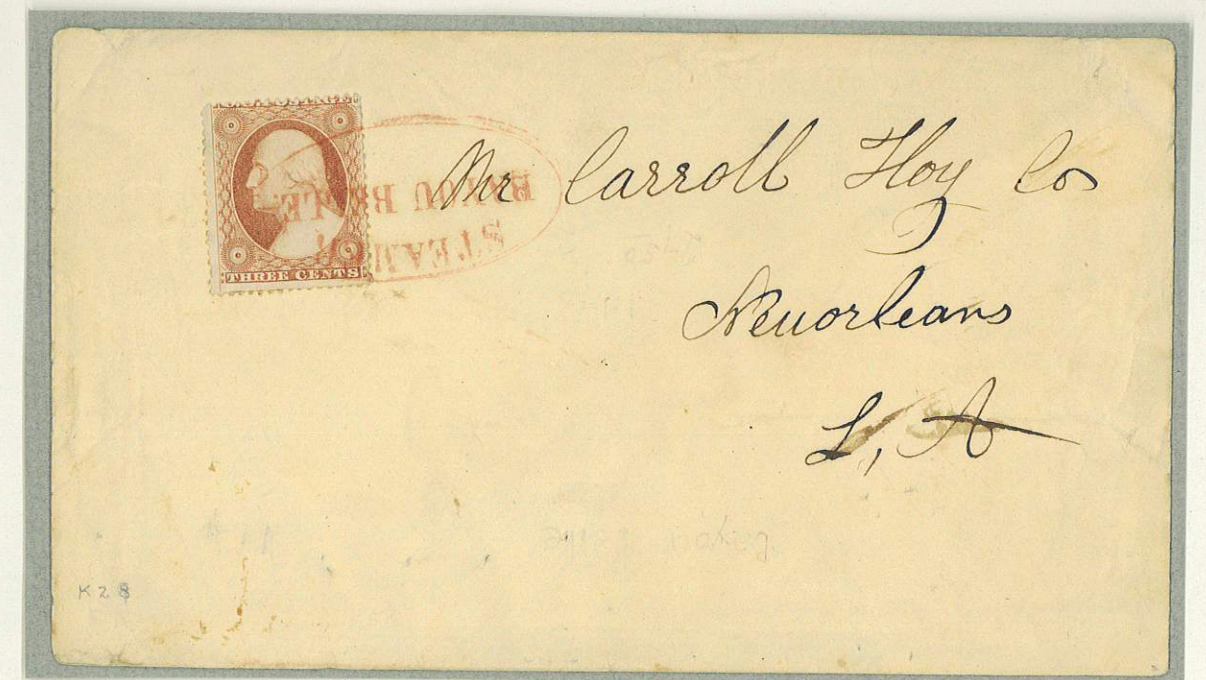 U.S. POSTAGE
THREE CENTS
STEAMER
BAYOU BELLE
Mr Carroll Hoy Co
Neworleans
L, A
K28